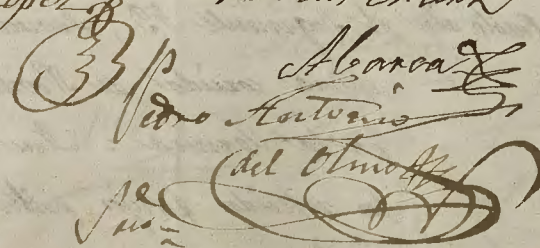 Lopez
Abarca
Pedro Antonio
del Olmo